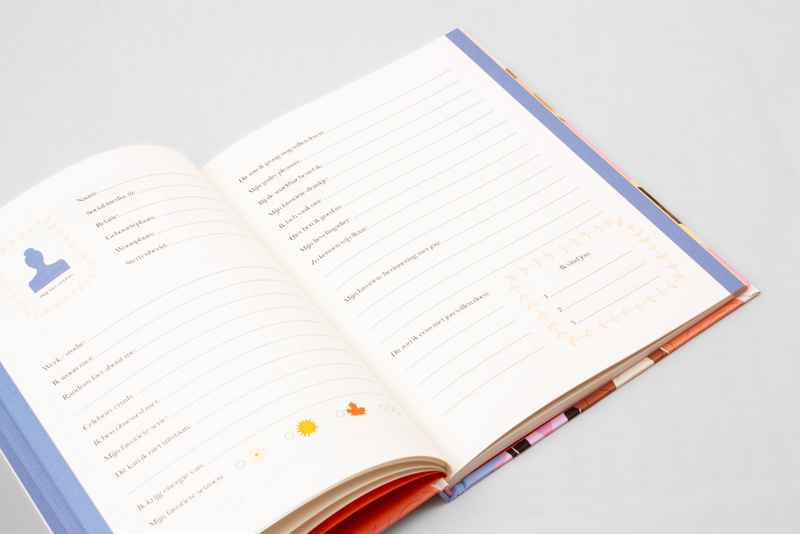 Naam:
Social media @:
Relatie:
Geboorteplaats:
Woonplaats:
Sterrenbeeld:
Plak hier een foto
Werk / studie:
Ik woon met:
Random fact about me:
Celebrity crush:
Ik ben obsessed met:
Mijn favoriete serie:
Dit kan ik niet uitstaan:
Ik krijg energie van:
Mijn favoriete seizoen:
Dit zou ik graag nog willen leren:
Mijn guilty pleasure:
Bij de snackbar bestel ik:
Mijn favoriete drankje:
Ik lach vaak om:
Hier ben ik goed in:
Mijn lievelingsdier:
Zo kennen wij elkaar:
Mijn favoriete herinnering met jou:
Dit zou ik eens met jou willen doen:
Ik vind jou:
1
2
3